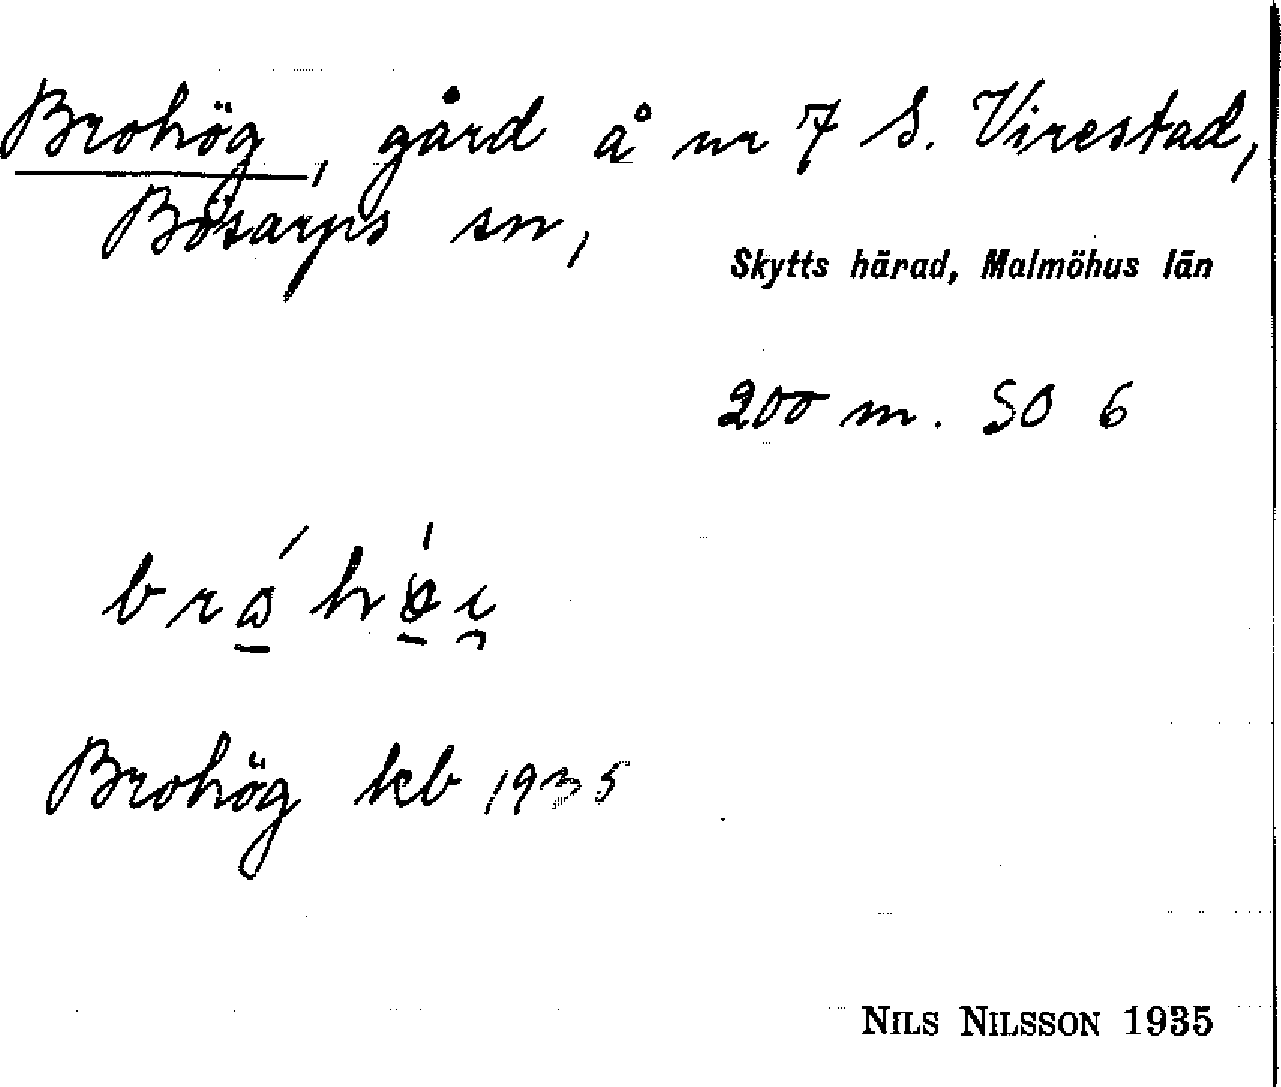 Brohög, gård å nr 7 S. Virestad,
Bösarps sn,
Skytts härad, Malmöhus län
200 m. SO 6
Brohög kb 1935
NILS NILSSON 1935